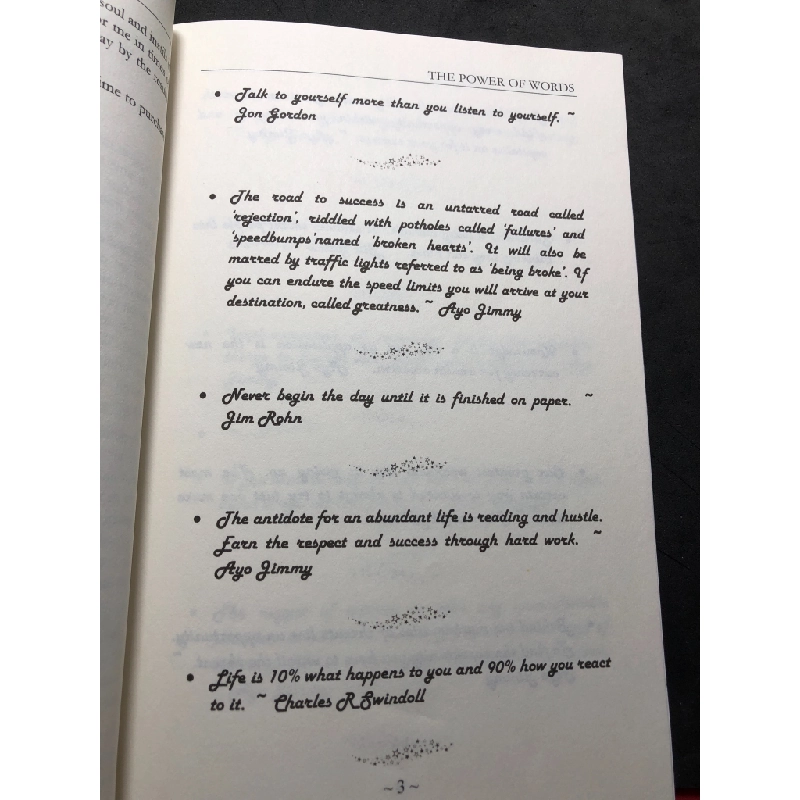 soul and
or me in
ay by the
me to
THE POWER OF WORDS
• Talk to yourself more than you listen to yourself. ~
Jon Gordon
• The road to success is an untarred road called
'rejection', riddled with potholes called 'failures' and
'speedbumps'named 'broken hearts'. It will also be
marred by traffic lights referred to as 'being broke'. If
you can endure the speed limits you will arrive at your
destination, called greatness. ~ Ayo Jimmy
• Never begin the day until it is finished on paper. ~
Jim Rohn
• The antidote for an abundant life is reading and hustle.
Earn the respect and success through hard work. ~
Ayo Jimmy
• Life is 10% what happens to you and 90% how you react
to it. ~ Charles R.Swindoll
~ 3 ~